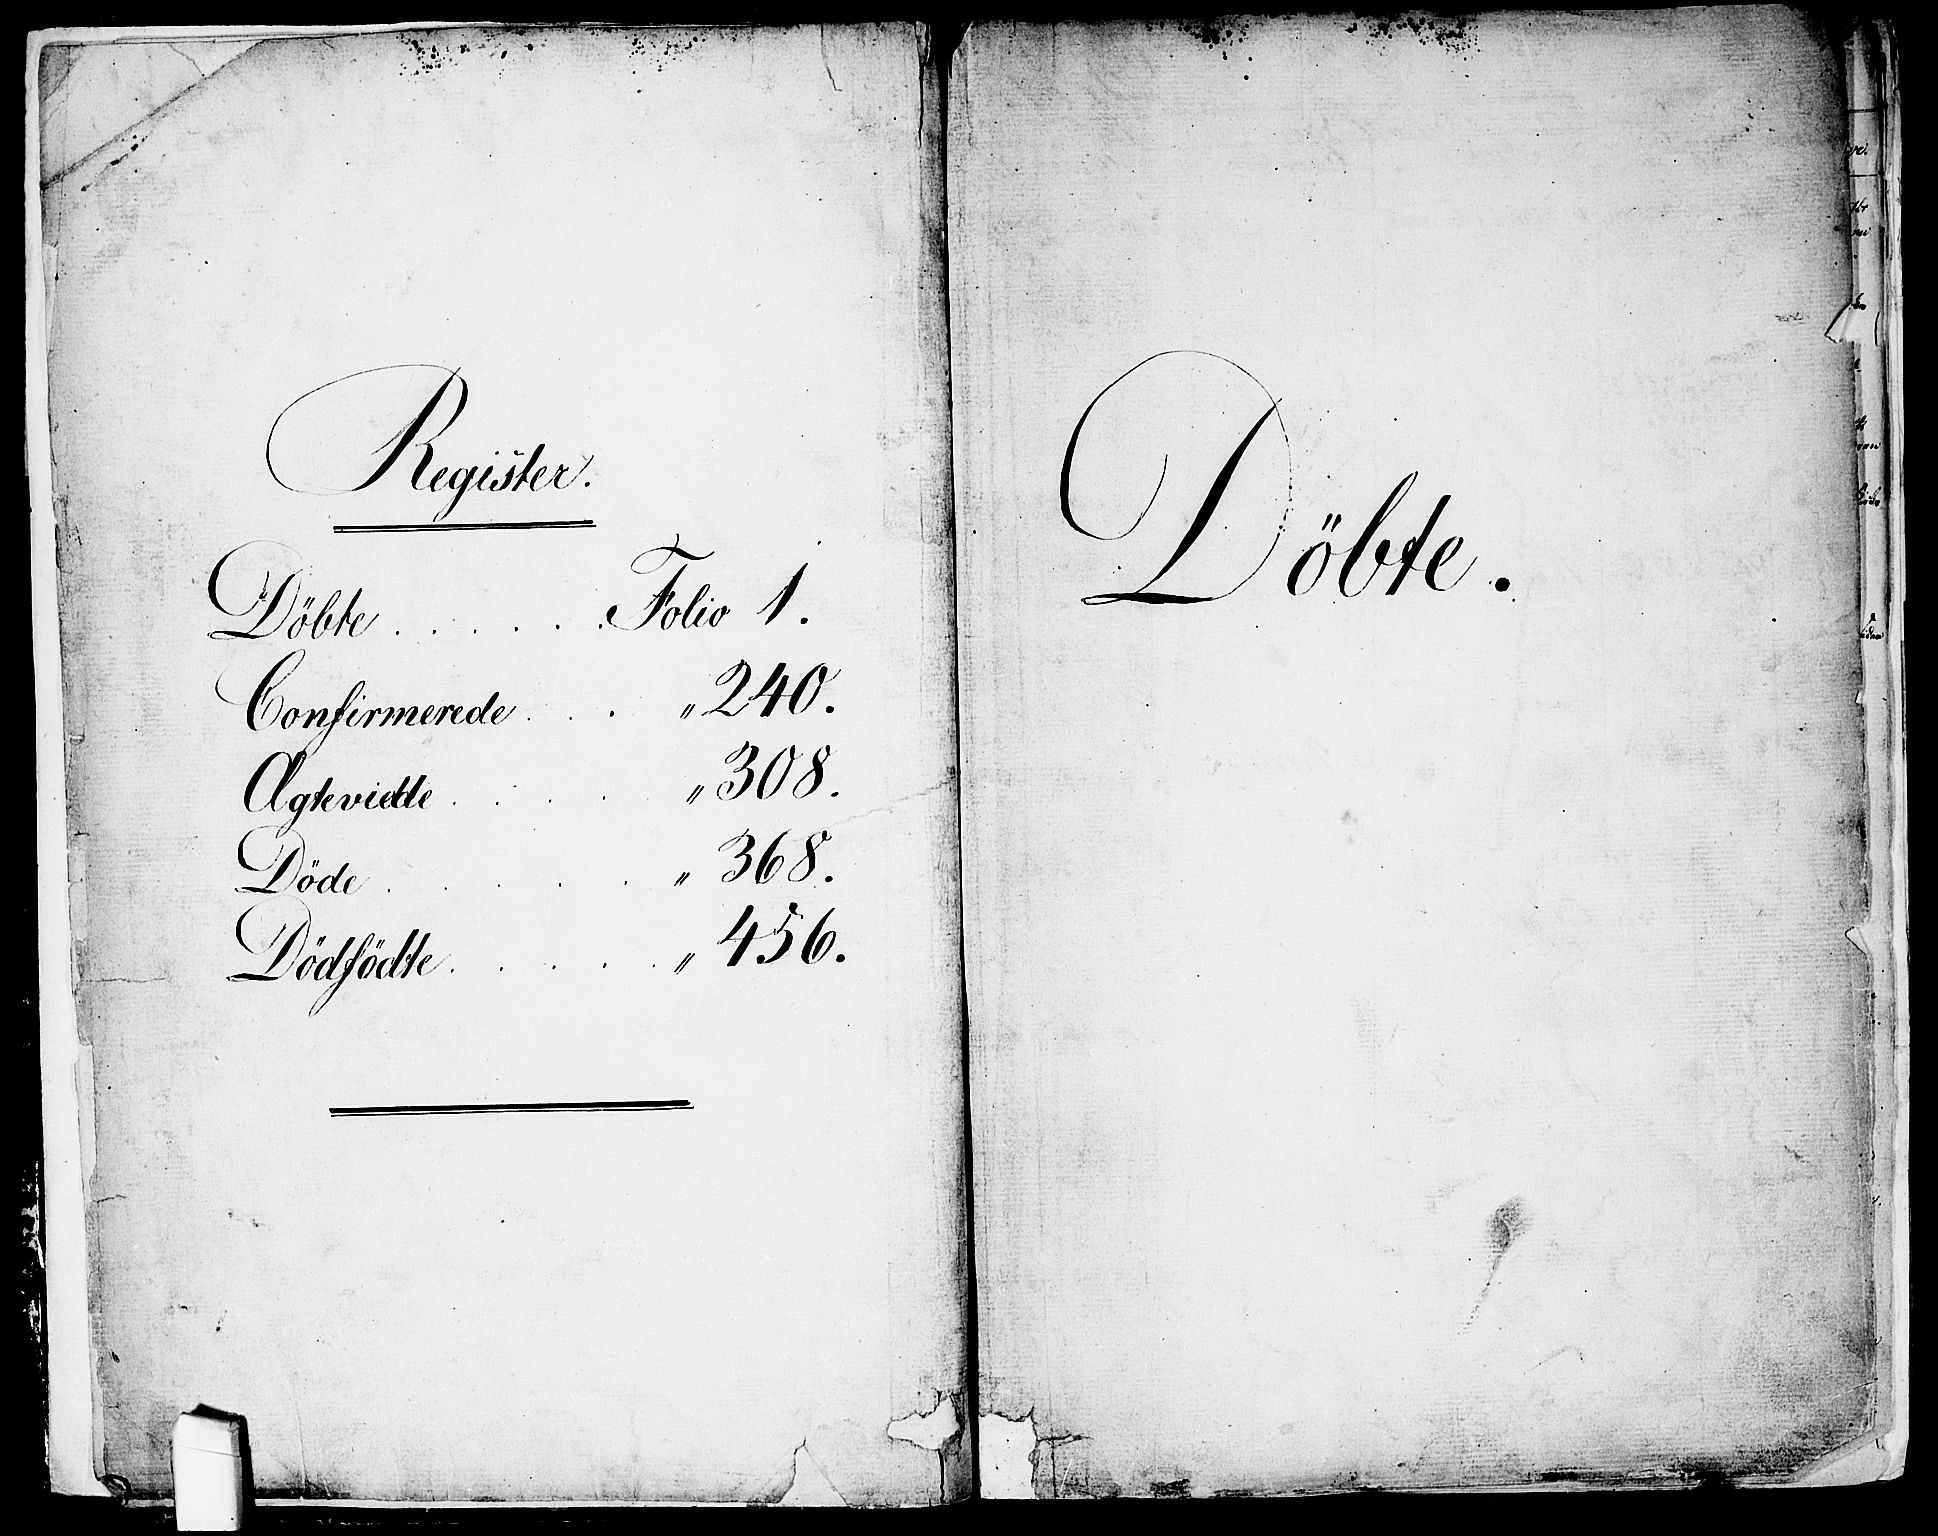 Register.
Döbte . . . . . . Folio 1.
Confirmerede . . . " 240.
Ægtevidde . . . . " 308.
Döde . . . . . " 368.
Dödfödte . . . . . " 456.
Döbte.